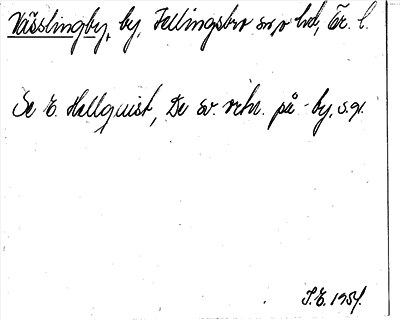 Vässlingby, by, Fellingsbro sn o hd, Ör. l.
Se E. Hellquist, De sv. ortn. på -by, s. 91.
S.E. 1954.